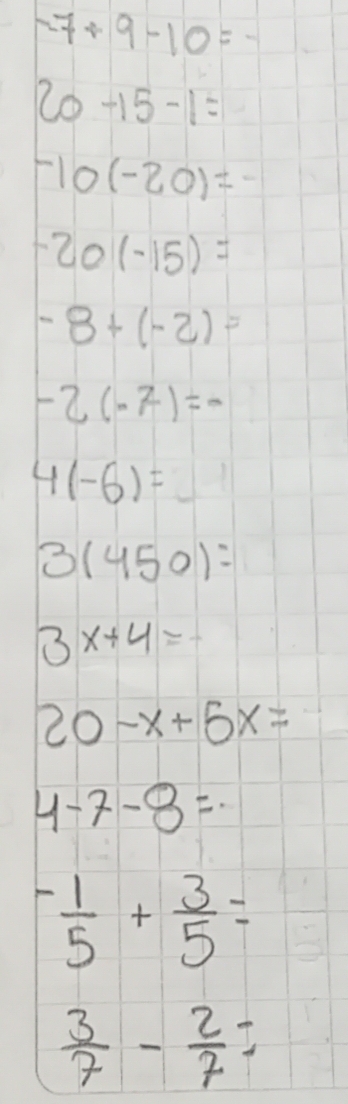 -7+9-10=-
20-15-1=
-10(-20)=-
-20(-15)=
-8+(-2)=
-2(-7)=-
4(-6)=
3(450)=
3x+4=-
20-x+5x=
4-7-8=-
-1/5 + 3/5=
3/7 - 2/7=